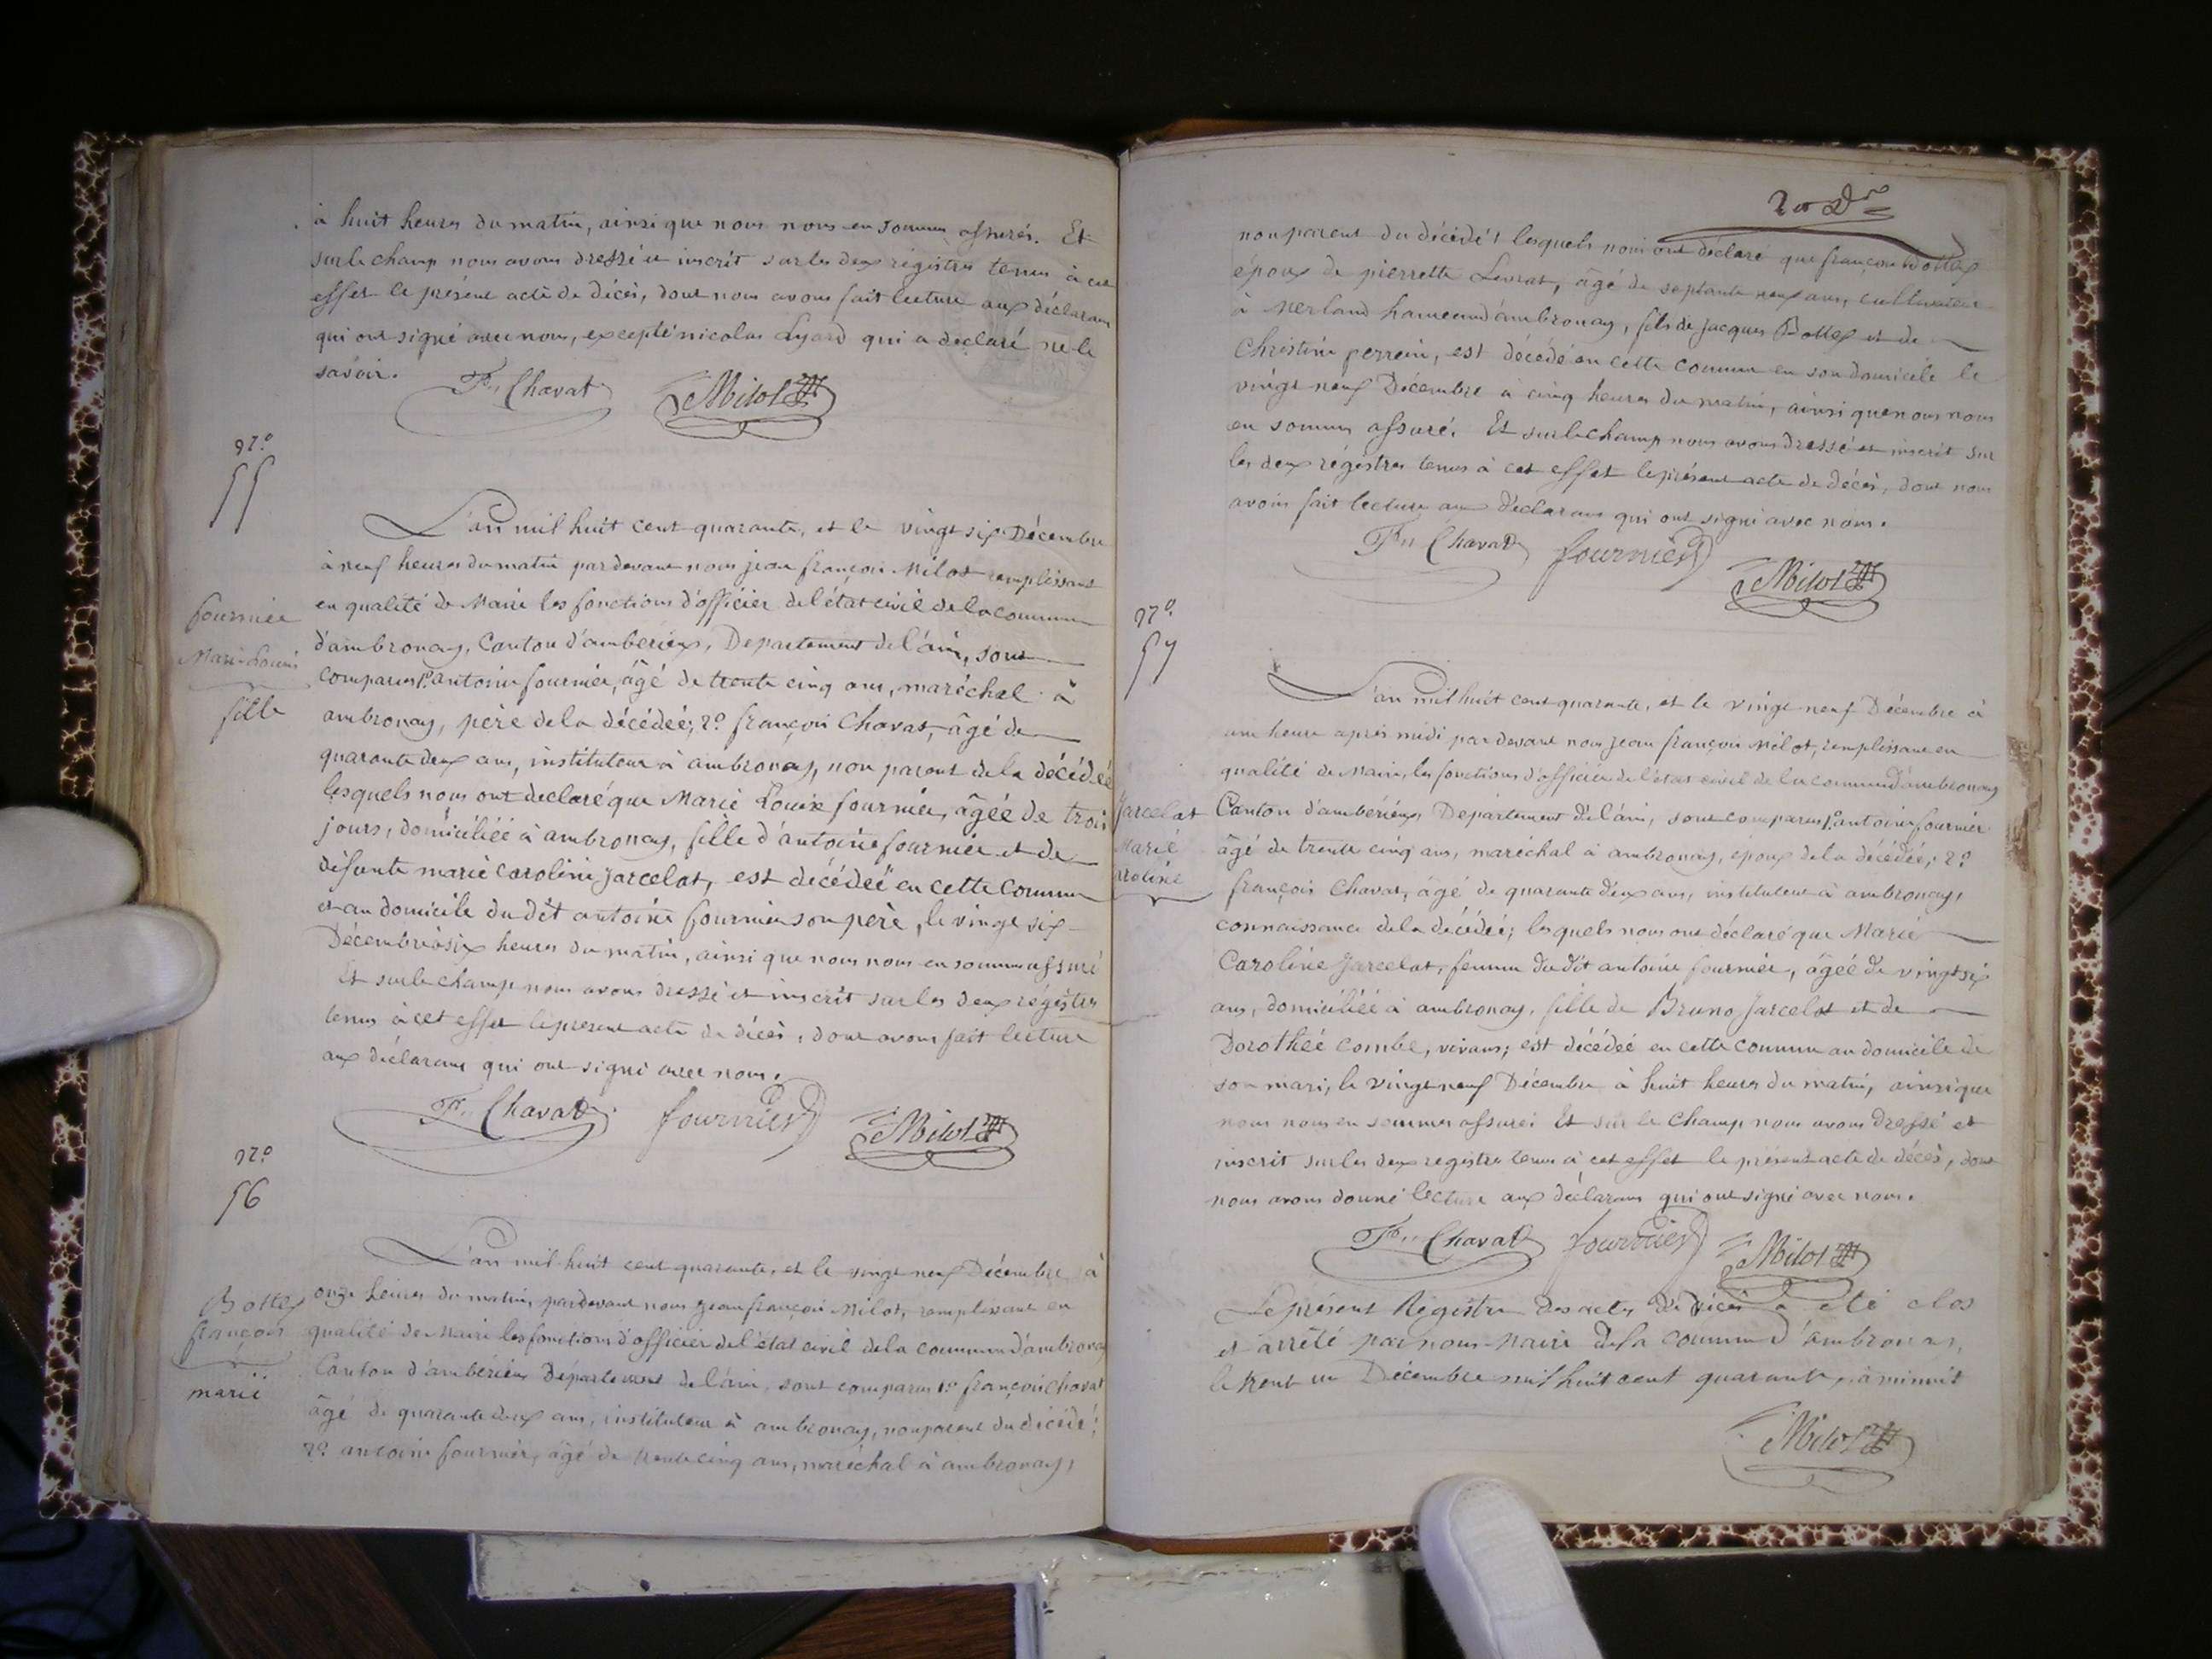 à huit heures du matin, ainsi que nous nous en sommes assurés. Et
sur le champ nous avons dressé et inscrit sur les deux régistres tenus à cet
effet le présent acte de décès, dont nous avons fait lecture aux déclarans
qui ont signé avec nous, excepté nicolas Lyard qui a declaré ne le
savoir.
Fs. Chavat Milot
N.o
55
fournier
Marie Louise
fille
L'an mil huit cent quarante, et le vingt six Décembre
à neuf heures du matin pardevant nous jean françois Milot remplissant
en qualité de Maire les fonctions d'officier de l'état civil de la commune
d'ambronay, Canton d'amberieux, Departement de l'ain, sont
comparus 1.o antoine fournier, âgé de trente cinq ans, maréchal à
ambronay, père de la décédée; 2.o françois Chavat, âgé de
quarante deux ans, instituteur à ambronay, non parent de la décédée
lesquels nous ont declaré que Marie Louise fournier, âgée de trois
jours, domiciliée à ambronay, fille d'antoine fournier et de
défunte marie caroline jarcelat, est décédée en cette commune
et au domicile du dit antoine fournier son père, le vingt six
Décembre à six heures du matin, ainsi que nous nous en sommes assuré
Et sur le champ nous avons dressé et inscrit sur les deux régistres
tenus à cet effet le présent acte de décès, dont avons fait lecture
aux déclarans qui ont signé avec nous.
Fs. Chavat fournier Milot
N.o
56
Bottex
françois
marié
L'an mil huit cent quarante, et le vingt neuf Décembre à
onze heures du matin, pardevant nous jean françois Milot, remplissant en
qualité de Maire les fonctions d'officier de l'état civil de la commune d'ambronay
Canton d'amberieux Département de l'ain, sont comparus 1.o françois Chavat
âgé de quarante deux ans, instituteur à ambronay, non parent du décédé;
2.o antoine fournier, âgé de trente cinq ans, maréchal à ambronay,
non parent du décédé; lesquels nous ont déclaré que françois Bottex
époux de pierrette Levrat, âgé de septante neuf ans, cultivateur
à Merland hameau d'ambronay, fils de jacques Bottex et de
Christine perrin, est décédé en cette commune en son domicile le
vingt neuf Décembre à cinq heures du matin, ainsi que nous nous
en sommes assuré. Et sur le champ nous avons dressé et inscrit sur
les deux régistres tenus à cet effet le présent acte de décès, dont nous
avons fait lecture aux déclarans qui ont signé avec nous.
Fs. Chavat fournier Milot
N.o
57
Jarcelat
Marie
aroline
L'an mil huit cent quarante, et le vingt neuf Décembre à
une heure après midi pardevant nous jean françois Milot, remplissant en
qualité de Maire, les fonctions d'officier de l'état civil de la commune d'ambronay
Canton d'amberieux Département de l'ain, sont comparus 1.o antoine fournier
âgé de trente cinq ans, maréchal à ambronay, époux de la décédée; 2.o
françois Chavat, âgé de quarante deux ans, instituteur à ambronay,
connaissance de la décédée; lesquels nous ont déclaré que Marie
Caroline Jarcelat, femme du dit antoine fournier, âgée de vingt six
ans, domiciliée à ambronay, fille de Bruno Jarcelat et de
Dorothée combe, vivans; est décédée en cette commune au domicile de
son mari, le vingt neuf Décembre à huit heures du matin, ainsi que
nous nous en sommes assurés Et sur le champ nous avons dressé et
inscrit sur les deux registres tenus à cet effet le présent acte de décès, dont
nous avons donné lecture aux déclarans qui ont signé avec nous.
Fs. Chavat fournier Milot
Le présent Régistre des actes de décès a été clos
et arrêté par nous maire de la commune d'ambronay,
le trent un Décembre mil huit cent quarante, à minuit
Milot